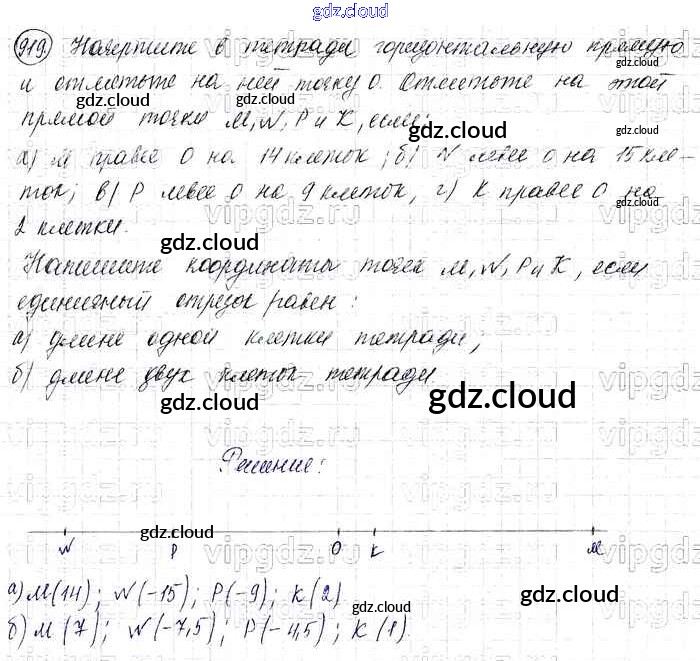 gdz.cloud
919. Начертите в тетради горизонтальную прямую
и отметьте на ней точку О. Отметьте на этой
прямой точки М, N, P и К, если:
а) М правее О на 14 клеток; б) N левее О на 15 кле-
ток; в) P левее О на 9 клеток, г) К правее О на
2 клетки.
Напишите координаты точек М, N, P и К, если
единичный отрезок равен:
а) длине одной клетки тетради;
б) длине двух клеток тетради
Решение:
N P O K M
а) М(14); N(-15); P(-9); К(2)
б) М(7); N(-7,5); P(-4,5); К(1).
gdz.cloud
gdz.cloud
gdz.cloud
gdz.cloud
gdz.cloud
gdz.cloud
gdz.cloud
gdz.cloud
gdz.cloud
gdz.cloud
gdz.cloud
gdz.cloud